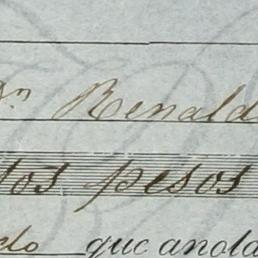 Dn Renald
tos pesos
do que anota